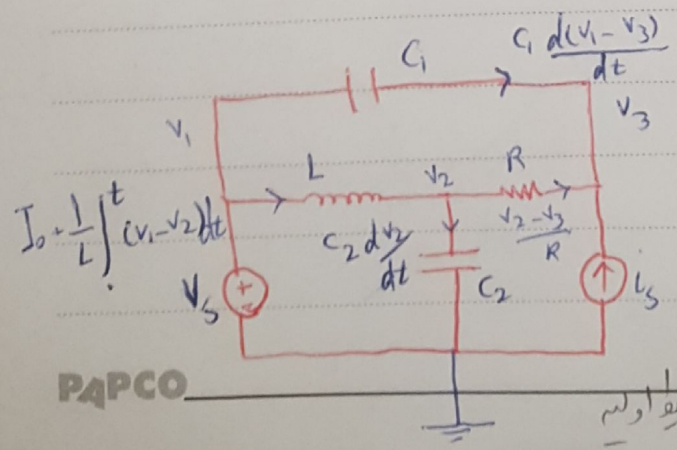 C₁
C₁ d(v₁ - v₃)/dt
v₁
v₃
L
v₂
R
I₀ + 1/L ∫ᵗ (v₁-v₂)dt
C₂ dv₂/dt
v₂-v₃/R
Vₛ
+
C₂
iₛ
PAPCO